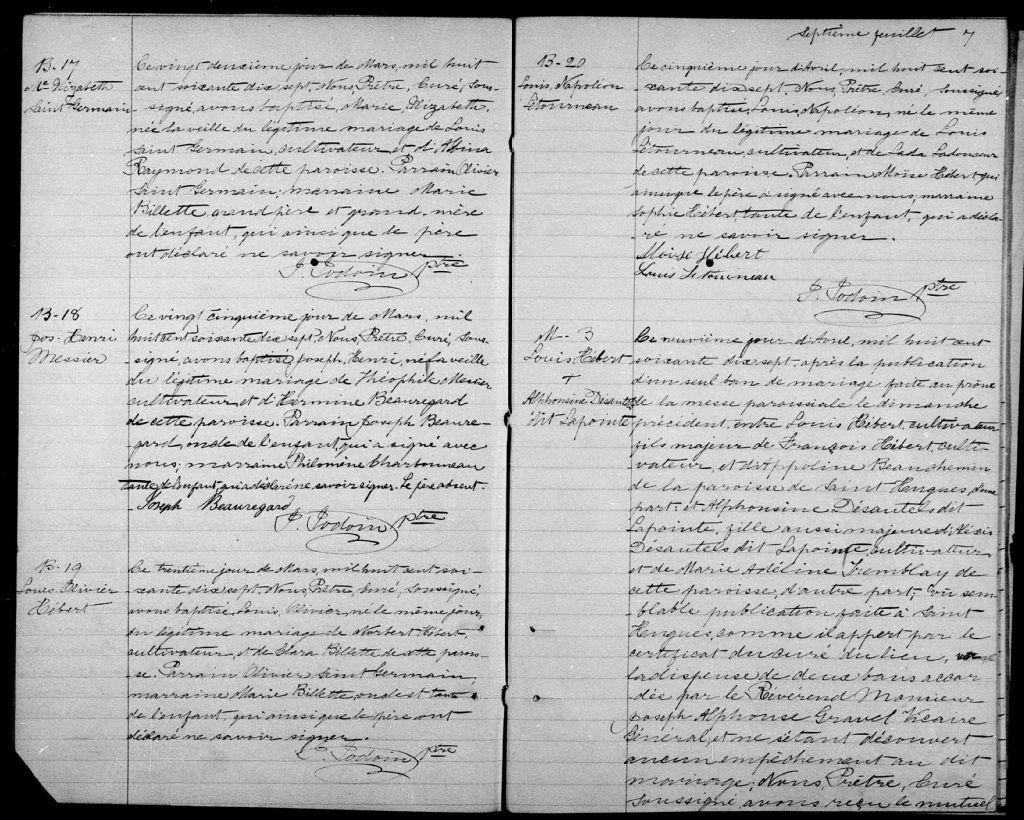 B-17
Me Elizabeth
Saint Germain
Ce vingt deuxième jour de Mars, mil huit
cent soixante dix sept, Nous, Prêtre, Curé, Sous-
signé, avons baptisé, Marie, Elizabeth,
née la veille du légitime mariage de Louis
Saint Germain, cultivateur, et d'Albina
Raymond de cette paroisse. Parrain Olivier
Saint Germain; marraine Marie
Billette, grand père et grand-mère
de l'enfant, qui ainsi que le père
ont déclaré ne savoir signer.
J. Jodoin ptre
B-18
Jos-Henri
Messier
Ce vingt cinquième jour de Mars, mil
huit cent soixante dix sept, Nous, Prêtre, Curé, Sous-
signé, avons baptisé, Joseph, Henri, né la veille
du légitime mariage de Théophile Messier
cultivateur et d'Hermine Beauregard
de cette paroisse. Parrain Joseph Beaure-
gard, oncle de l'enfant, qui a signé avec
nous; marraine Philomène Charbonneau
tante de l'enfant, qui a déclaré ne savoir signer. Le père absent.
Joseph Beauregard
J. Jodoin ptre
B-19
Louis Olivier
Hébert
Ce trentième jour de Mars, mil huit cent soi-
xante dix sept, Nous, Prêtre, Curé, Soussigné,
avons baptisé, Louis, Olivier, né le même jour,
du légitime mariage de Norbert Hébert,
cultivateur, et de Clara Billette de cette parois-
se. Parrain Olivier Saint Germain;
marraine Marie Billette oncle et tante
de l'enfant, qui ainsi que le père ont
déclaré ne savoir signer.
J. Jodoin ptre
Septième feuillet 7
B-20
Louis, Napoléon
Létourneau
Ce cinquième jour d'Avril, mil huit cent soi-
xante dix sept, Nous, Prêtre, Curé, Soussigné,
avons baptisé, Louis, Napoléon, né le même
jour du légitime mariage de Louis
Létourneau, cultivateur, et de Ladouceur
de cette paroisse. Parrain Moïse Hébert qui
ainsi que le père a signé avec nous; marraine
Sophie Hébert, tante de l'enfant, qui a décla-
ré ne savoir signer.
Moïse Hébert
Louis Letourneau
J. Jodoin ptre
M-3
Louis Hébert
+
Alphonsine Désautels
dit Lapointe
Ce neuvième jour d'Avril, mil huit cent
soixante dix sept, après la publication
d'un seul ban de mariage faite au prône
de la messe paroissiale le dimanche
précédent, entre Louis Hébert, cultivateur
fils majeur de François Hébert, culti-
vateur, et d'Appoline Beauchemin
de la paroisse de Saint Hugues, d'une
part; et Alphonsine Désautels dit
Lapointe, fille aussi majeure d'Alexis
Désautels dit Lapointe, cultivateur
et de Marie Adéline Tremblay de
cette paroisse, d'autre part; vu sem-
blable publication faite à Saint
Hugues, comme il appert par le
certificat du curé du lieu,
la dispense de deux bans accor-
dée par le Révérend Monsieur
Joseph Alphonse Gravel Vicaire
Général, et ne s'étant découvert
aucun empêchement au dit
mariage; Nous, Prêtre, Curé
soussigné, avons reçu le mutuel